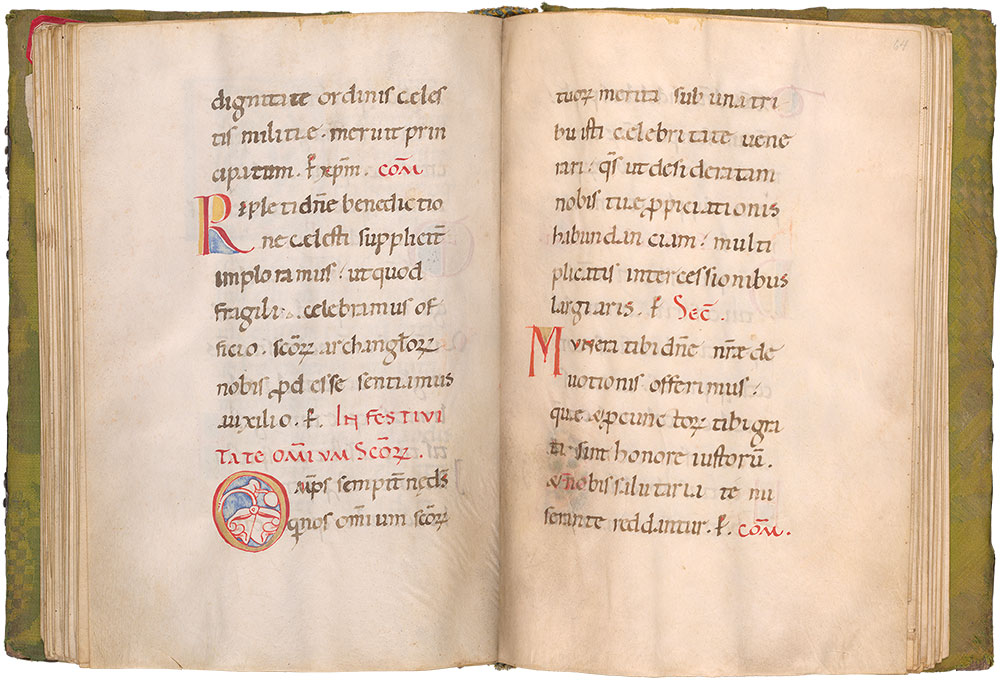 dignitate ordinis celes
tis militie. meruit prin
cipatum. ꝑ xp̄m. com̄
Repleti dn̄e benedictio
ne celesti supplicit̄
imploramus. ut quod
fragili celebramus of
ficio. scōꝝ archangl̄oꝝ
nobis ꝓdesse sentiamus
auxilio. ꝑ. IN FESTIVI
TATE OM̄IUM SCŌꝜ.
Om̄ps sempit̄ne ds̄
qui nos omīum scōꝝ
64
tuoꝝ merita sub una tri
buisti celebritate vene
rari. qs̄ ut desideratam
nobis tue ꝓpiciationis
habundanciam. multi
plicatis intercessionibus
largiaris. ꝑ Sec̄.
Munera tibi dn̄e nr̄ae de
uotionis offerimus.
que &
ta sint honore iustoꝝ.
& nobis salutaria te mi
serante reddantur. ꝑ. com̄.